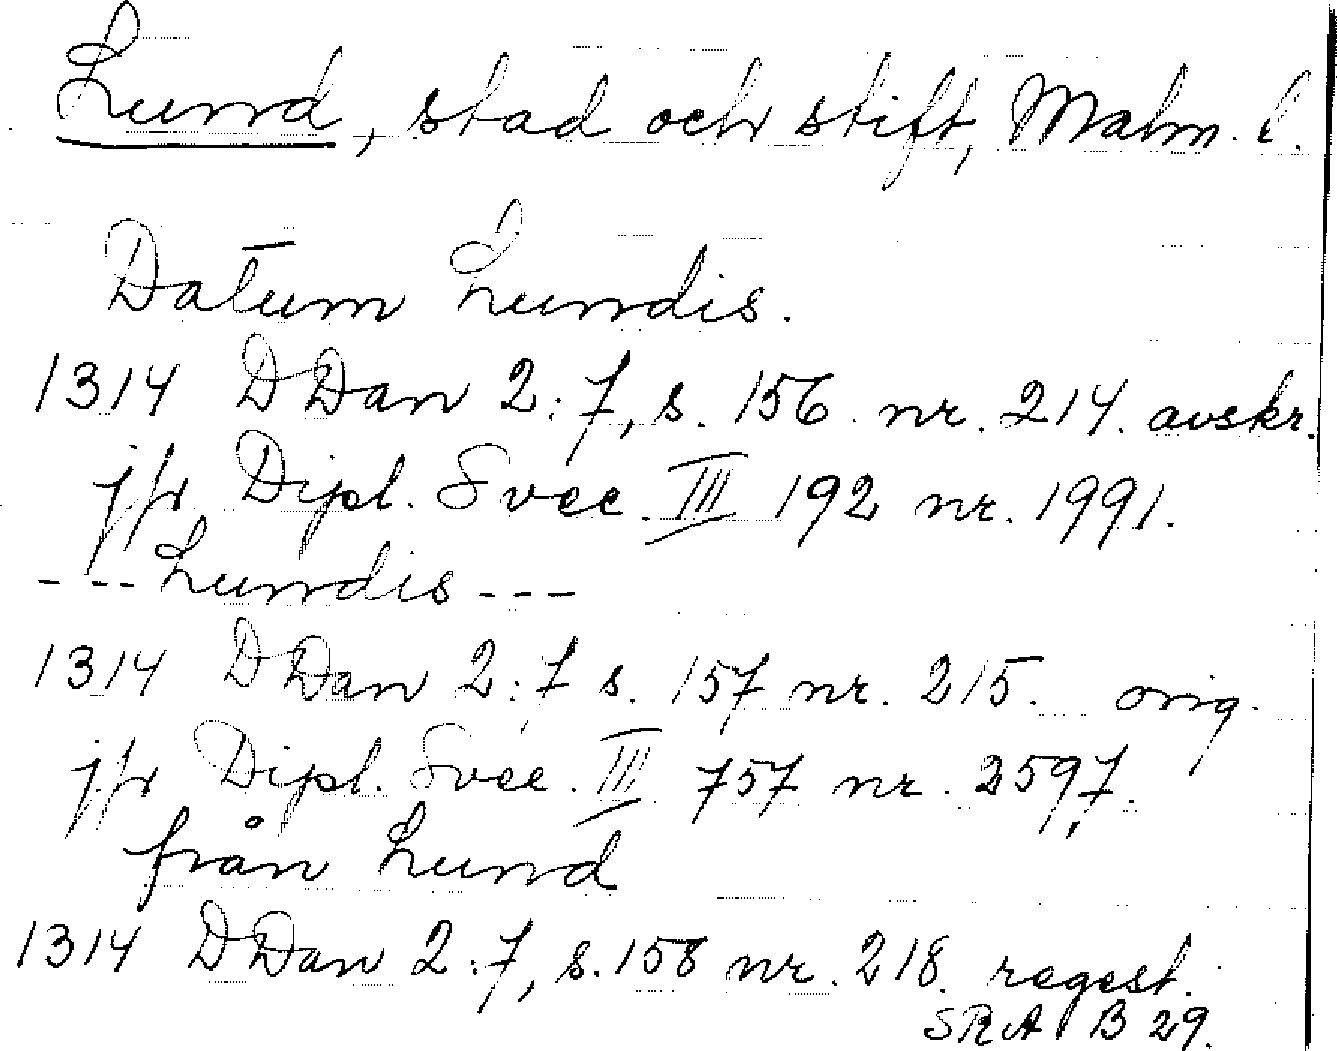 Lund, stad och stift, Malm. l.
Datum Lundis.
1314 DDan 2:7, s. 156 nr. 214. avskr.
jfr Dipl. Svec. III 192 nr. 1991.
---Lundis---
1314 DDan 2:7 s. 157 nr. 215. orig.
jfr Dipl. Svec. III 757 nr. 2597.
från Lund
1314 DDan 2:7, s. 158 nr. 218. regest.
SRA B 29.